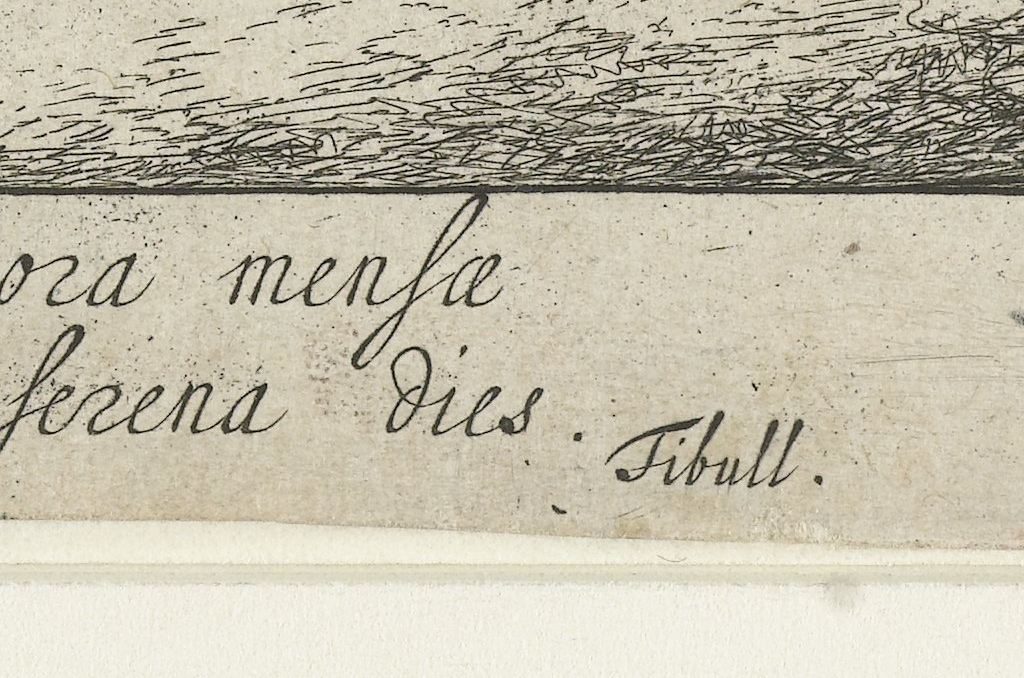 ora menſæ
ſerena dies.
Tibull.